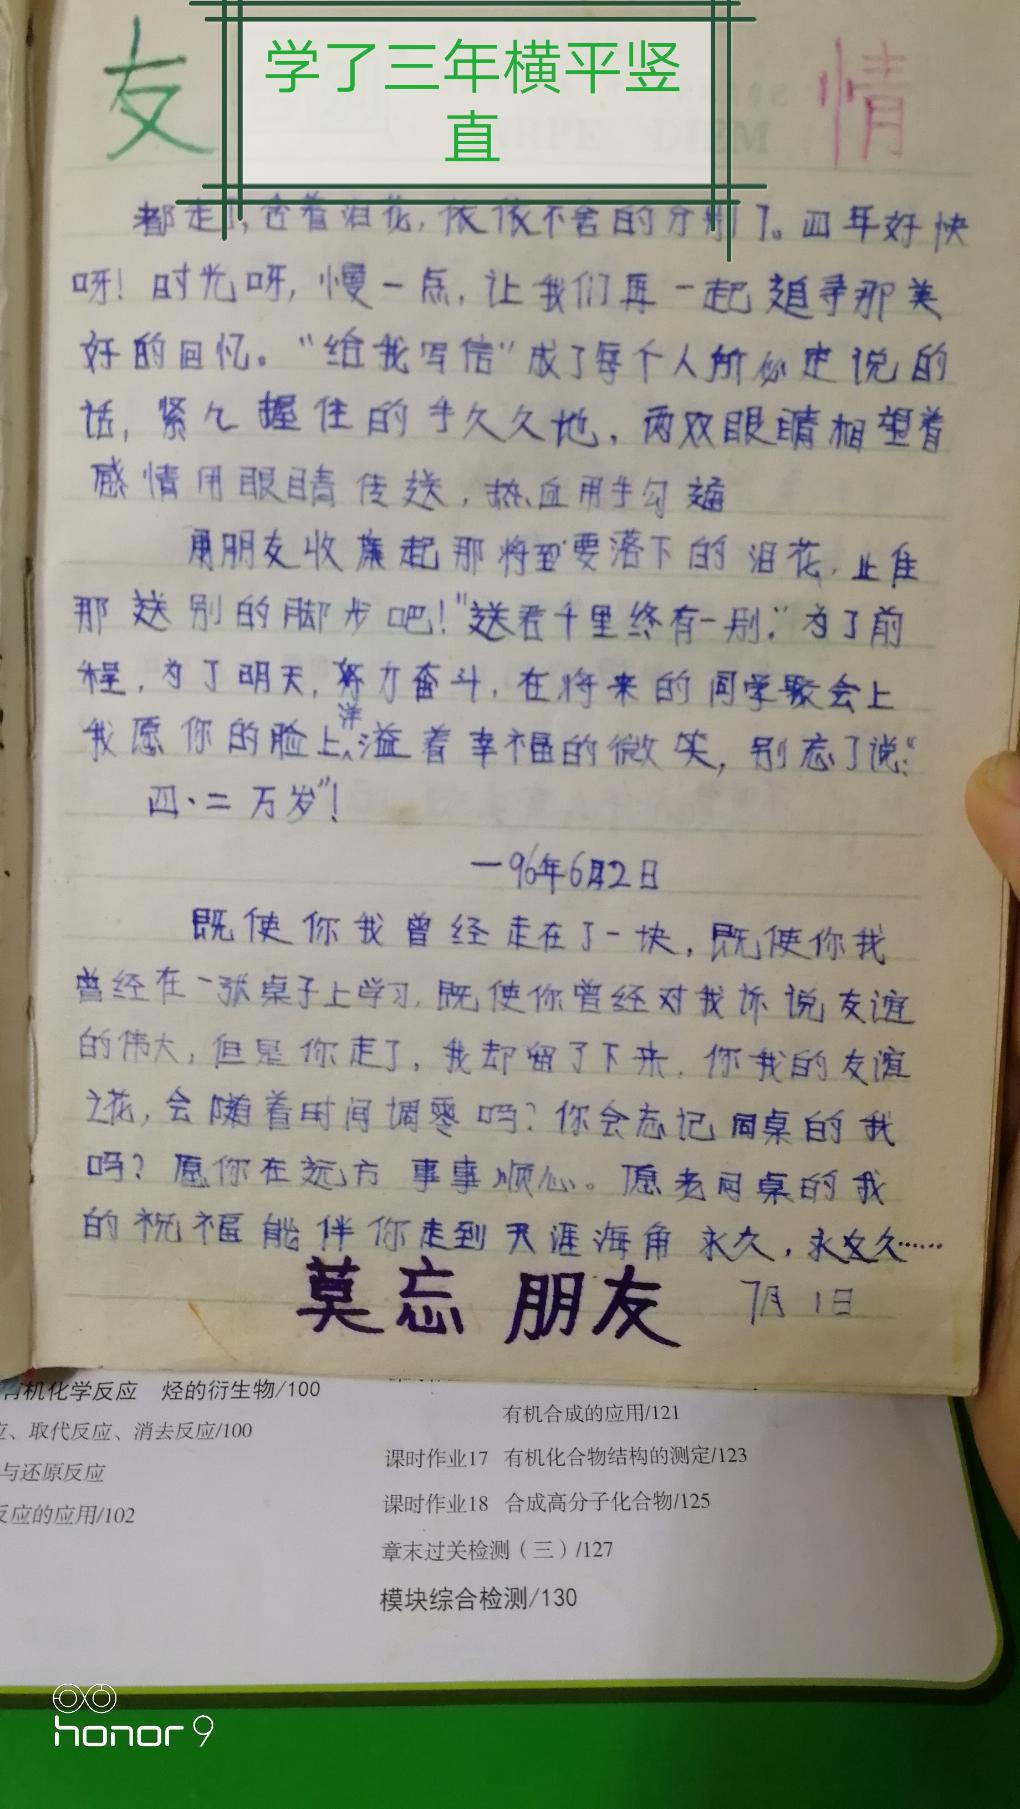 友 情
学了三年横平竖
直
都走了,含着泪花,依依不舍的分别了。四年好快
呀!时光呀,慢一点,让我们再一起追寻那美
好的回忆。“给我写信”成了每个人所必定说的
话,紧々握住的手久久地,两双眼睛相望着
感情用眼睛传送,热血用手勾通
朋友收藏起那将到要落下的泪花,止住
那送别的脚步吧!“送君千里终有一别.”为了前
程,为了明天,努力奋斗,在将来的同学聚会上
我愿你的脸上洋溢着幸福的微笑,别忘了说:“
四·二万岁”!
一96年6月2日
既使你我曾经走在了一块,既使你我
曾经在一张桌子上学习,既使你曾经对我诉说友谊
的伟大,但是你走了,我却留了下来,你我的友谊
之花,会随着时间调零吗?你会忘记同桌的我
吗?愿你在远方 事事顺心。愿老同桌的我
的祝福能伴你走到天涯海角 永久,永久久……
莫忘朋友 7月1日
有机化学反应 烃的衍生物/100
、取代反应、消去反应/100
与还原反应
反应的应用/102
有机合成的应用/121
课时作业17 有机化合物结构的测定/123
课时作业18 合成高分子化合物/125
章末过关检测(三)/127
模块综合检测/130
honor 9